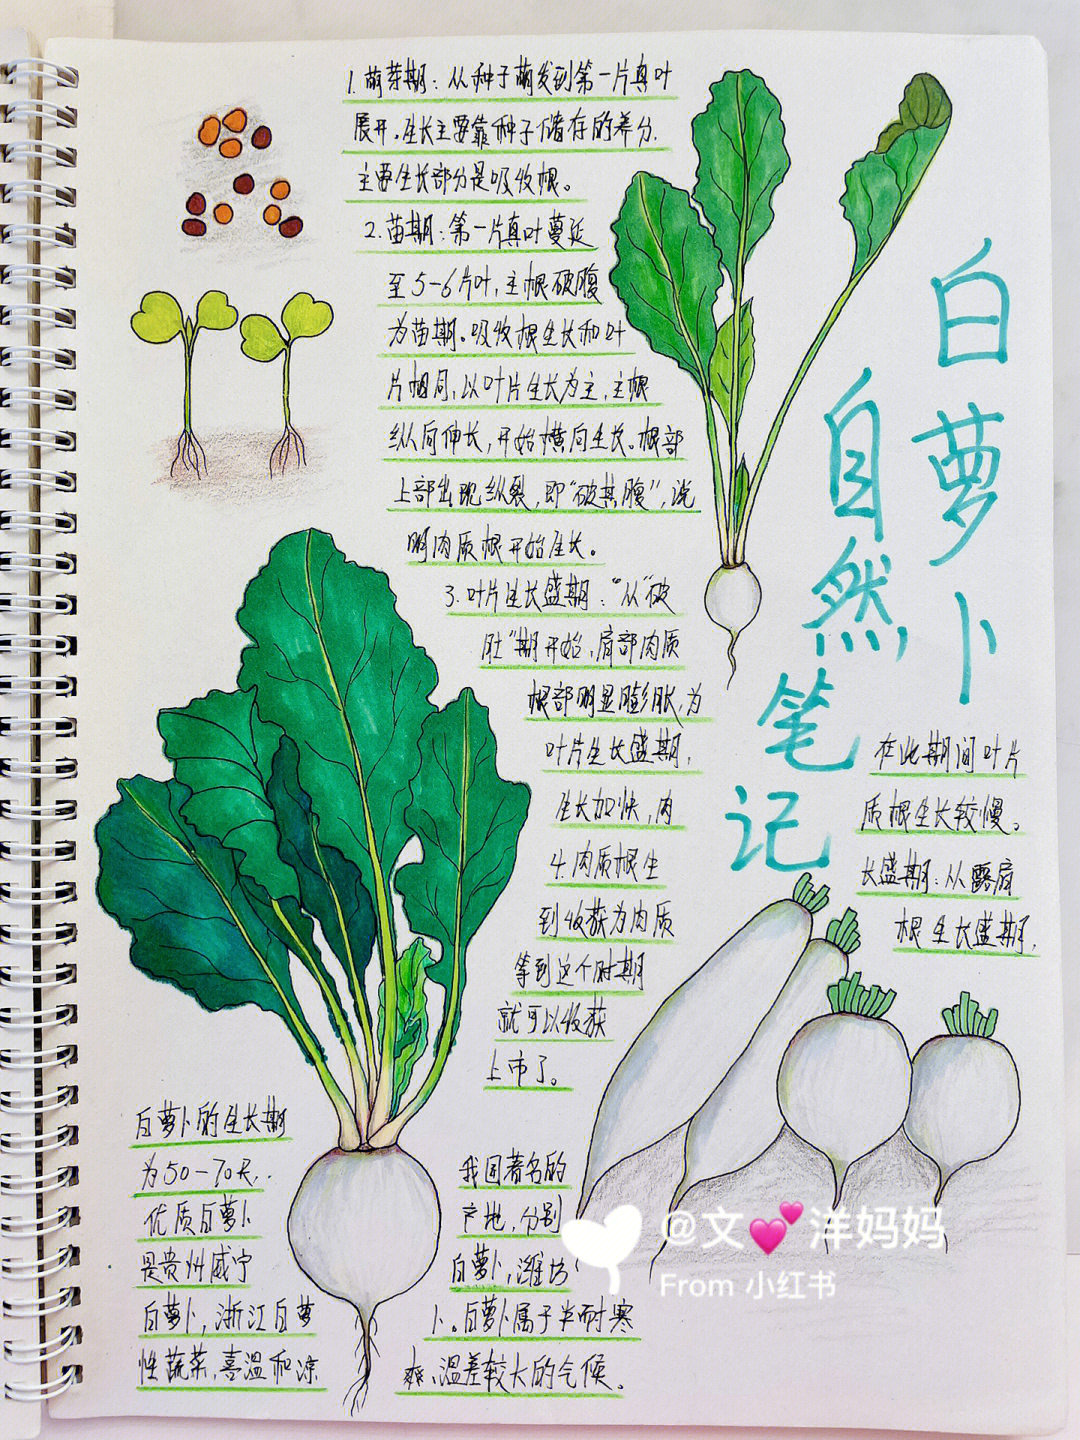 白萝卜
自然笔记
1.萌芽期：从种子萌发到第一片真叶
展开。生长主要靠种子储存的养分，
主要生长部分是吸收根。
2.苗期：第一片真叶蔓延
至5-6片叶，主根破腹
为苗期。吸收根生长和叶
片相同，以叶片生长为主，主根
纵向伸长，开始横向生长。根部
上部出现纵裂，即“破其腹”，说
明肉质根开始生长。
3.叶片生长盛期：“从”破
肚”期开始，肩部肉质
根部明显膨胀，为
叶片生长盛期， 在此期间叶片
生长加快，肉 质根生长较慢。
4.肉质根生 长盛期：从露肩
到收获为肉质 根生长盛期，
等到这个时期
就可以收获
上市了。
白萝卜的生长期
为50-70天， 我国著名的
优质白萝卜 产地，分别
是贵州威宁 白萝卜，潍坊
白萝卜，浙江白萝 卜。白萝卜属于半耐寒
性蔬菜，喜温和凉 爽、温差较大的气候。
@文💕洋妈妈
From 小红书